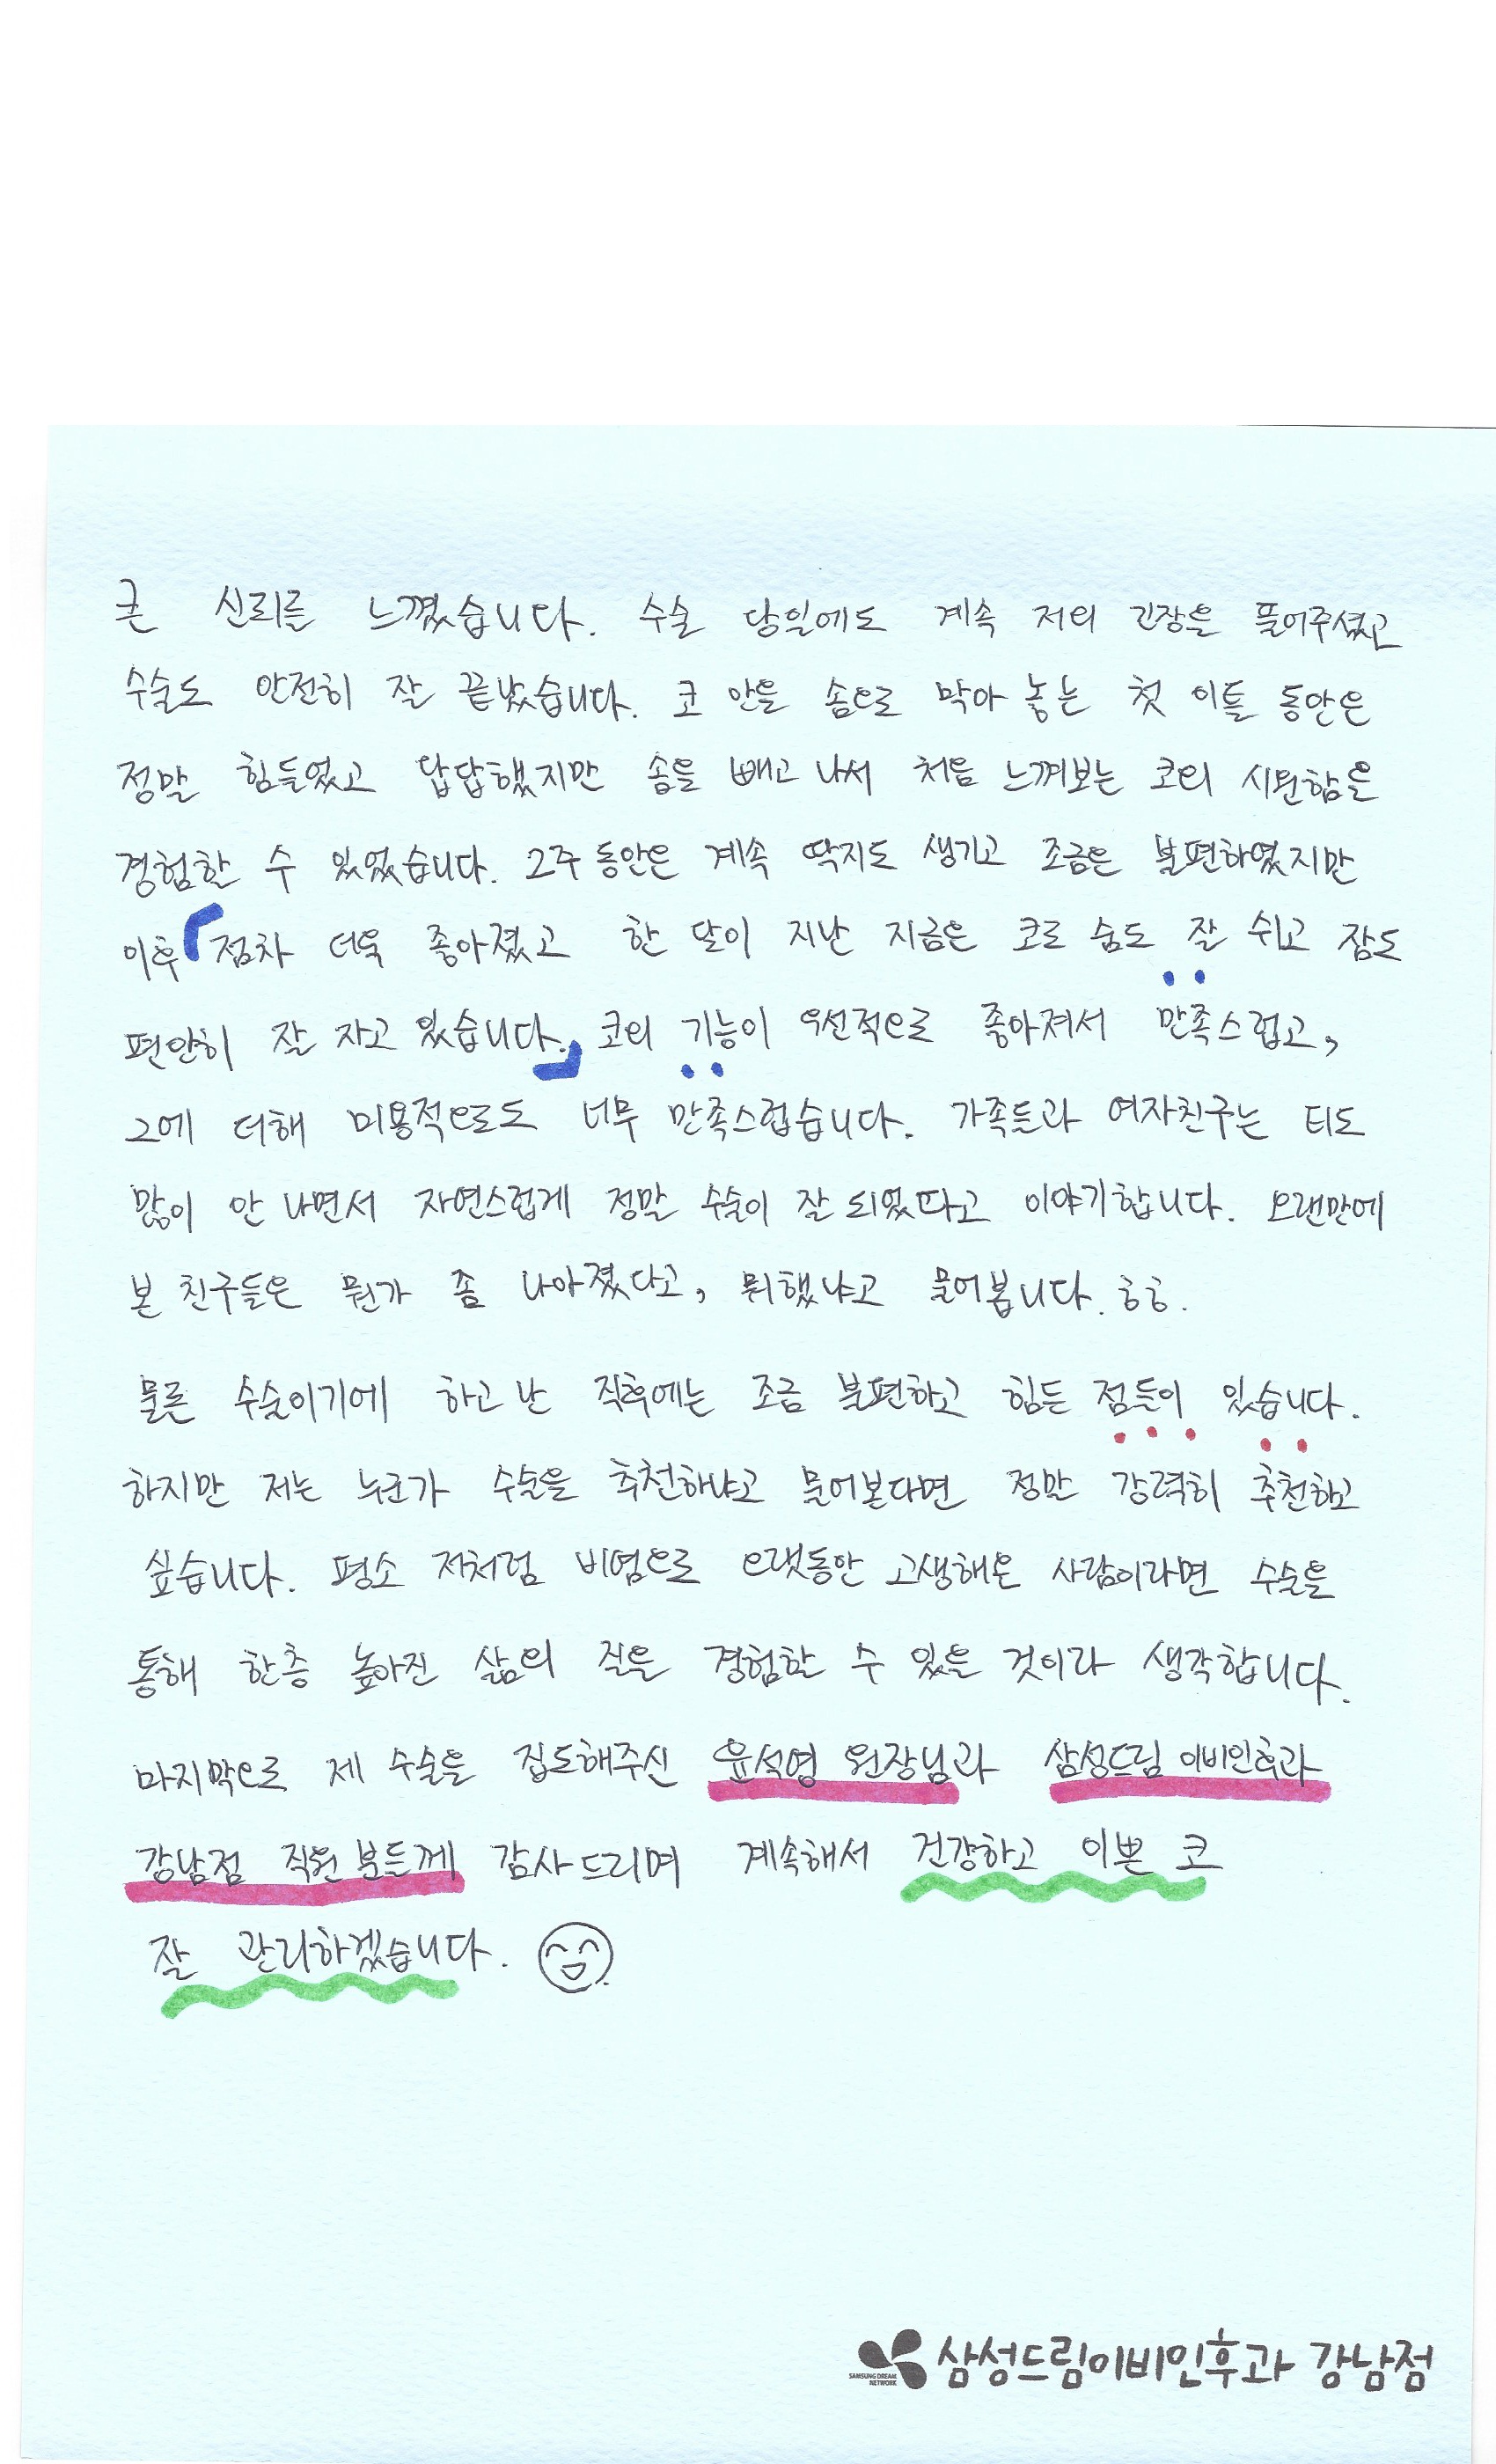 큰 신뢰를 느꼈습니다. 수술 당일에도 계속 저의 긴장을 풀어주셨고
수술도 안전히 잘 끝났습니다. 코 안을 솜으로 막아 놓는 첫 이틀 동안은
정말 힘들었고 답답했지만 솜을 빼고 나서 처음 느껴보는 코의 시원함을
경험할 수 있었습니다. 2주 동안은 계속 딱지도 생기고 조금은 불편하였지만
이후 「점차 더욱 좋아졌고 한 달이 지난 지금은 코로 숨도 잘 쉬고 잠도
편안히 잘 자고 있습니다.」 코의 기능이 우선적으로 좋아져서 만족스럽고,
그에 더해 미용적으로도 너무 만족스럽습니다. 가족들과 여자친구는 티도
많이 안 나면서 자연스럽게 정말 수술이 잘 되었다고 이야기합니다. 오랜만에
본 친구들은 뭔가 좀 나아졌다고, 뭐했냐고 물어봅니다. ㅎㅎ.
물론 수술이기에 하고 난 직후에는 조금 불편하고 힘든 점들이 있습니다.
하지만 저는 누군가 수술을 추천하냐고 물어본다면 정말 강력히 추천하고
싶습니다. 평소 저처럼 비염으로 오랫동안 고생해온 사람이라면 수술을
통해 한층 높아진 삶의 질을 경험할 수 있을 것이라 생각합니다.
마지막으로 제 수술을 집도해주신 윤석영 원장님과 삼성드림 이비인후과
강남점 직원 분들께 감사드리며 계속해서 건강하고 이쁜 코
잘 관리하겠습니다.
SAMSUNG DREAM
NETWORK
삼성드림이비인후과 강남점